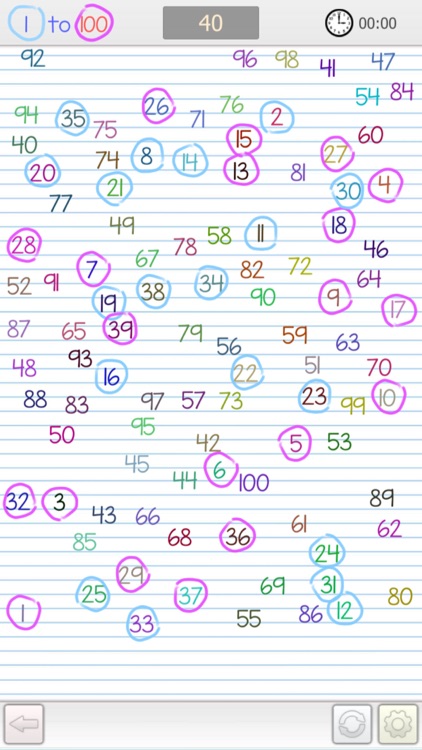 1 to 100 40 00:00
92 96 98 41 47
54 84
94 35 75 26 71 76 2
40 15 60
74 8 14 13 27
20 21 81 30 4
77
49 58 11 18
28 78 46
7 67 82 72
52 91 38 34 90 9 64
19 17
87 65 39 79 56 59 63
48 93 51 70
16 22
88 83 97 57 73 23 99 10
50 95 42 5 53
45 44 6 100
32 3 43 66 89
85 68 36 61 62
24
29 31
25 37 69 80
1 33 55 86 12